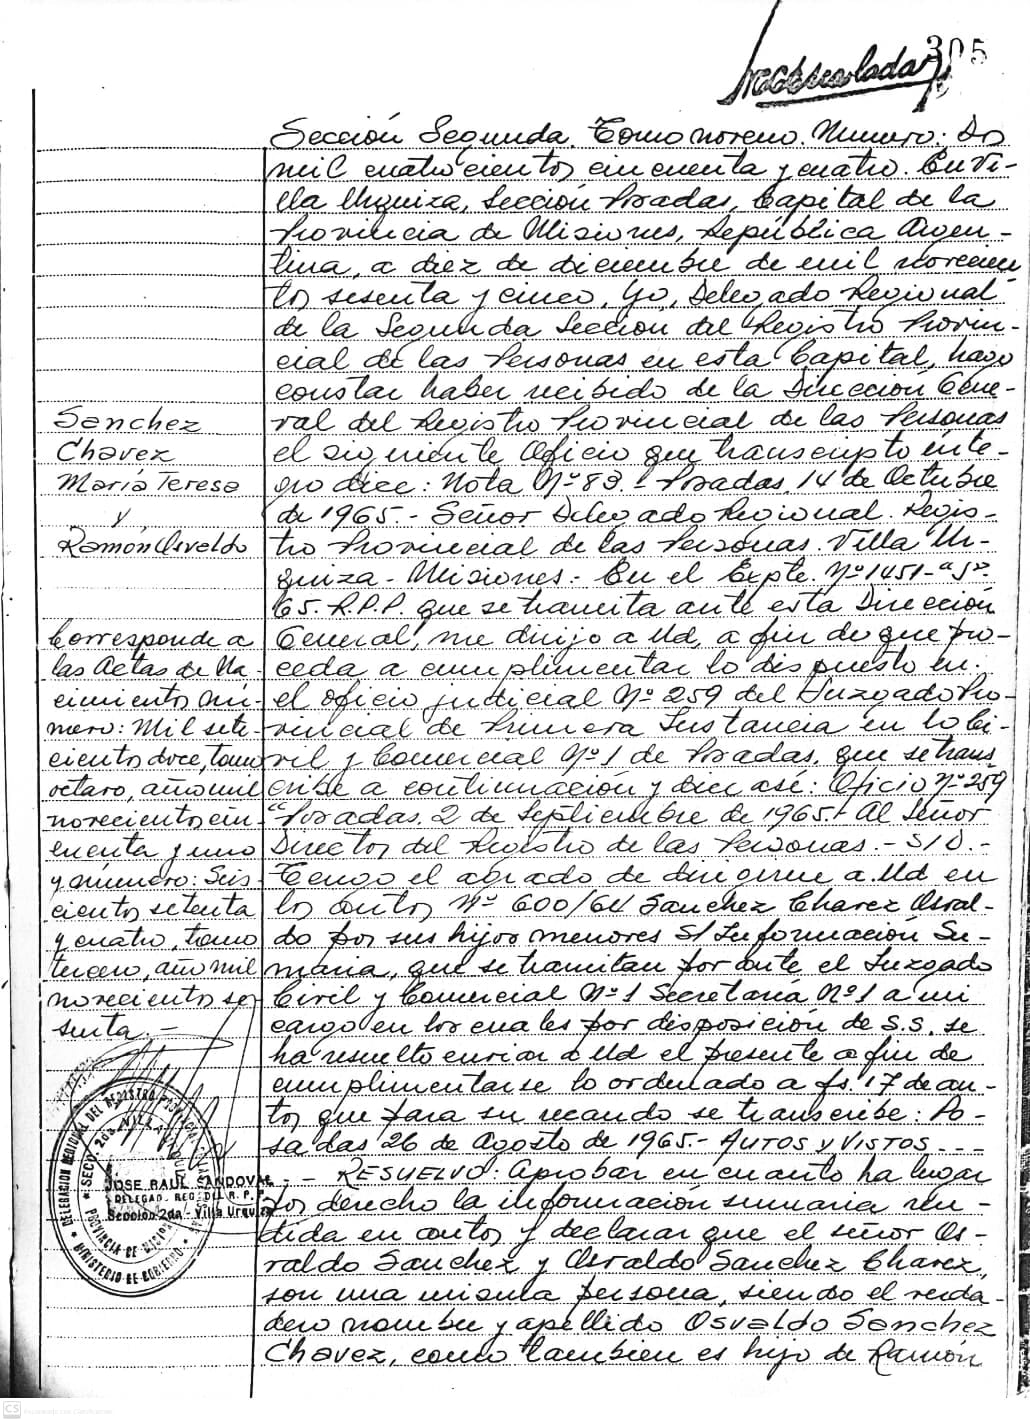 305
Sección Segunda. Tomo noveno. Numero: Dos
mil cuatrocientos cincuenta y cuatro. En Vi-
lla Urquiza, Sección Posadas, Capital de la
Provincia de Misiones, República Argen-
tina, a diez de diciembre de mil novecien
tos sesenta y cinco, Yo, Delegado Regional
de la Segunda Sección del Registro Provin-
cial de las Personas en esta Capital, hago
constar haber recibido de la Dirección Gene-
ral del Registro Provincial de las Personas
el siguiente Oficio que transcripto ínte-
gro dice: Nota Nº 83.- Posadas, 14 de Octubre
de 1965.- Señor Delegado Regional. Regis-
tro Provincial de las Personas. Villa Ur-
quiza - Misiones.- En el Expte. Nº 1451-"S"-
65. R.P.P. que se tramita ante esta Dirección
General, me dirijo a Ud, a fin de que pro-
ceda a cumplimentar lo dispuesto en
el oficio judicial Nº 259 del Juzgado Pro-
vincial de Primera Instancia en lo Ci-
vil y Comercial Nº 1 de Posadas, que se trans
cribe a continuación y dice así: Oficio Nº 259
"Posadas, 2 de Septiembre de 1965.- Al Señor
Director del Registro de las Personas.- S/D.-
Tengo el agrado de dirigirme a Ud en
los autos Nº 600/64 Sanchez Chavez Osval-
do por sus hijos menores S/ Información Su-
maria, que se tramitan por ante el Juzgado
Civil y Comercial Nº 1 Secretaría Nº 1 a mi
cargo en los cuales por disposición de S.S. se
ha resuelto enviar a Ud el presente a fin de
cumplimentarse lo ordenado a fs. 17 de au-
tos que para su recaudo se transcribe: Po-
sadas 26 de Agosto de 1965.- AUTOS Y VISTOS ---
-- RESUELVO: Aprobar en cuanto ha lugar
por derecho la información sumaria ren-
dida en autos y declarar que el señor Os-
valdo Sanchez y Osvaldo Sanchez Chavez,
son una misma persona, siendo el verda-
dero nombre y apellido Osvaldo Sanchez
Chavez, como tambien es hijo de Ramón
Sanchez
Chavez
María Teresa
y
Ramón Osvaldo
Corresponde a
las Actas de Na-
cimientos nú-
mero: Mil sete-
cientos doce, tomo
octavo, año mil
novecientos cin-
cuenta y uno
y número: Seis-
cientos setenta
y cuatro, tomo
tercero, año mil
novecientos se-
senta.-
DELEGACION REGIONAL DEL REGISTRO PROVINCIAL
SECC. 2da - VILLA URQUIZA
PROVINCIA DE MISIONES
MINISTERIO DE GOBIERNO
JOSE RAUL SANDOVAL
DELEGAD. REG. DEL R. P. P.
Sección 2da - Villa Urquiza
CS